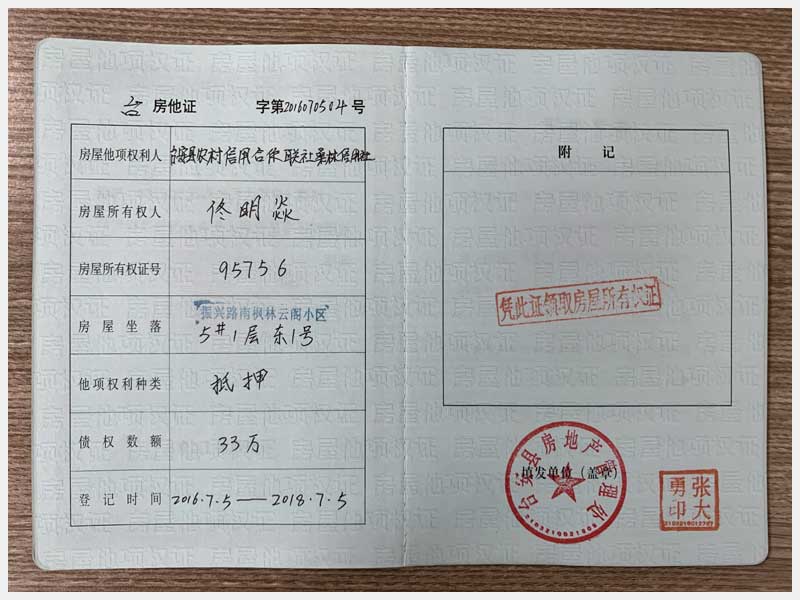 台 房他证 字第2016070504号
房屋他项权利人 台安县农村信用合作联社桑林信用社
房屋所有权人 佟明焱
房屋所有权证号 95756
房屋坐落 振兴路南枫林云阁小区
5#1层东1号
他项权利种类 抵押
债权数额 33万
登记时间 2016.7.5——2018.7.5
附 记
凭此证领取房屋所有权证
填发单位（盖章）
台安县房地产管理处
张大勇印